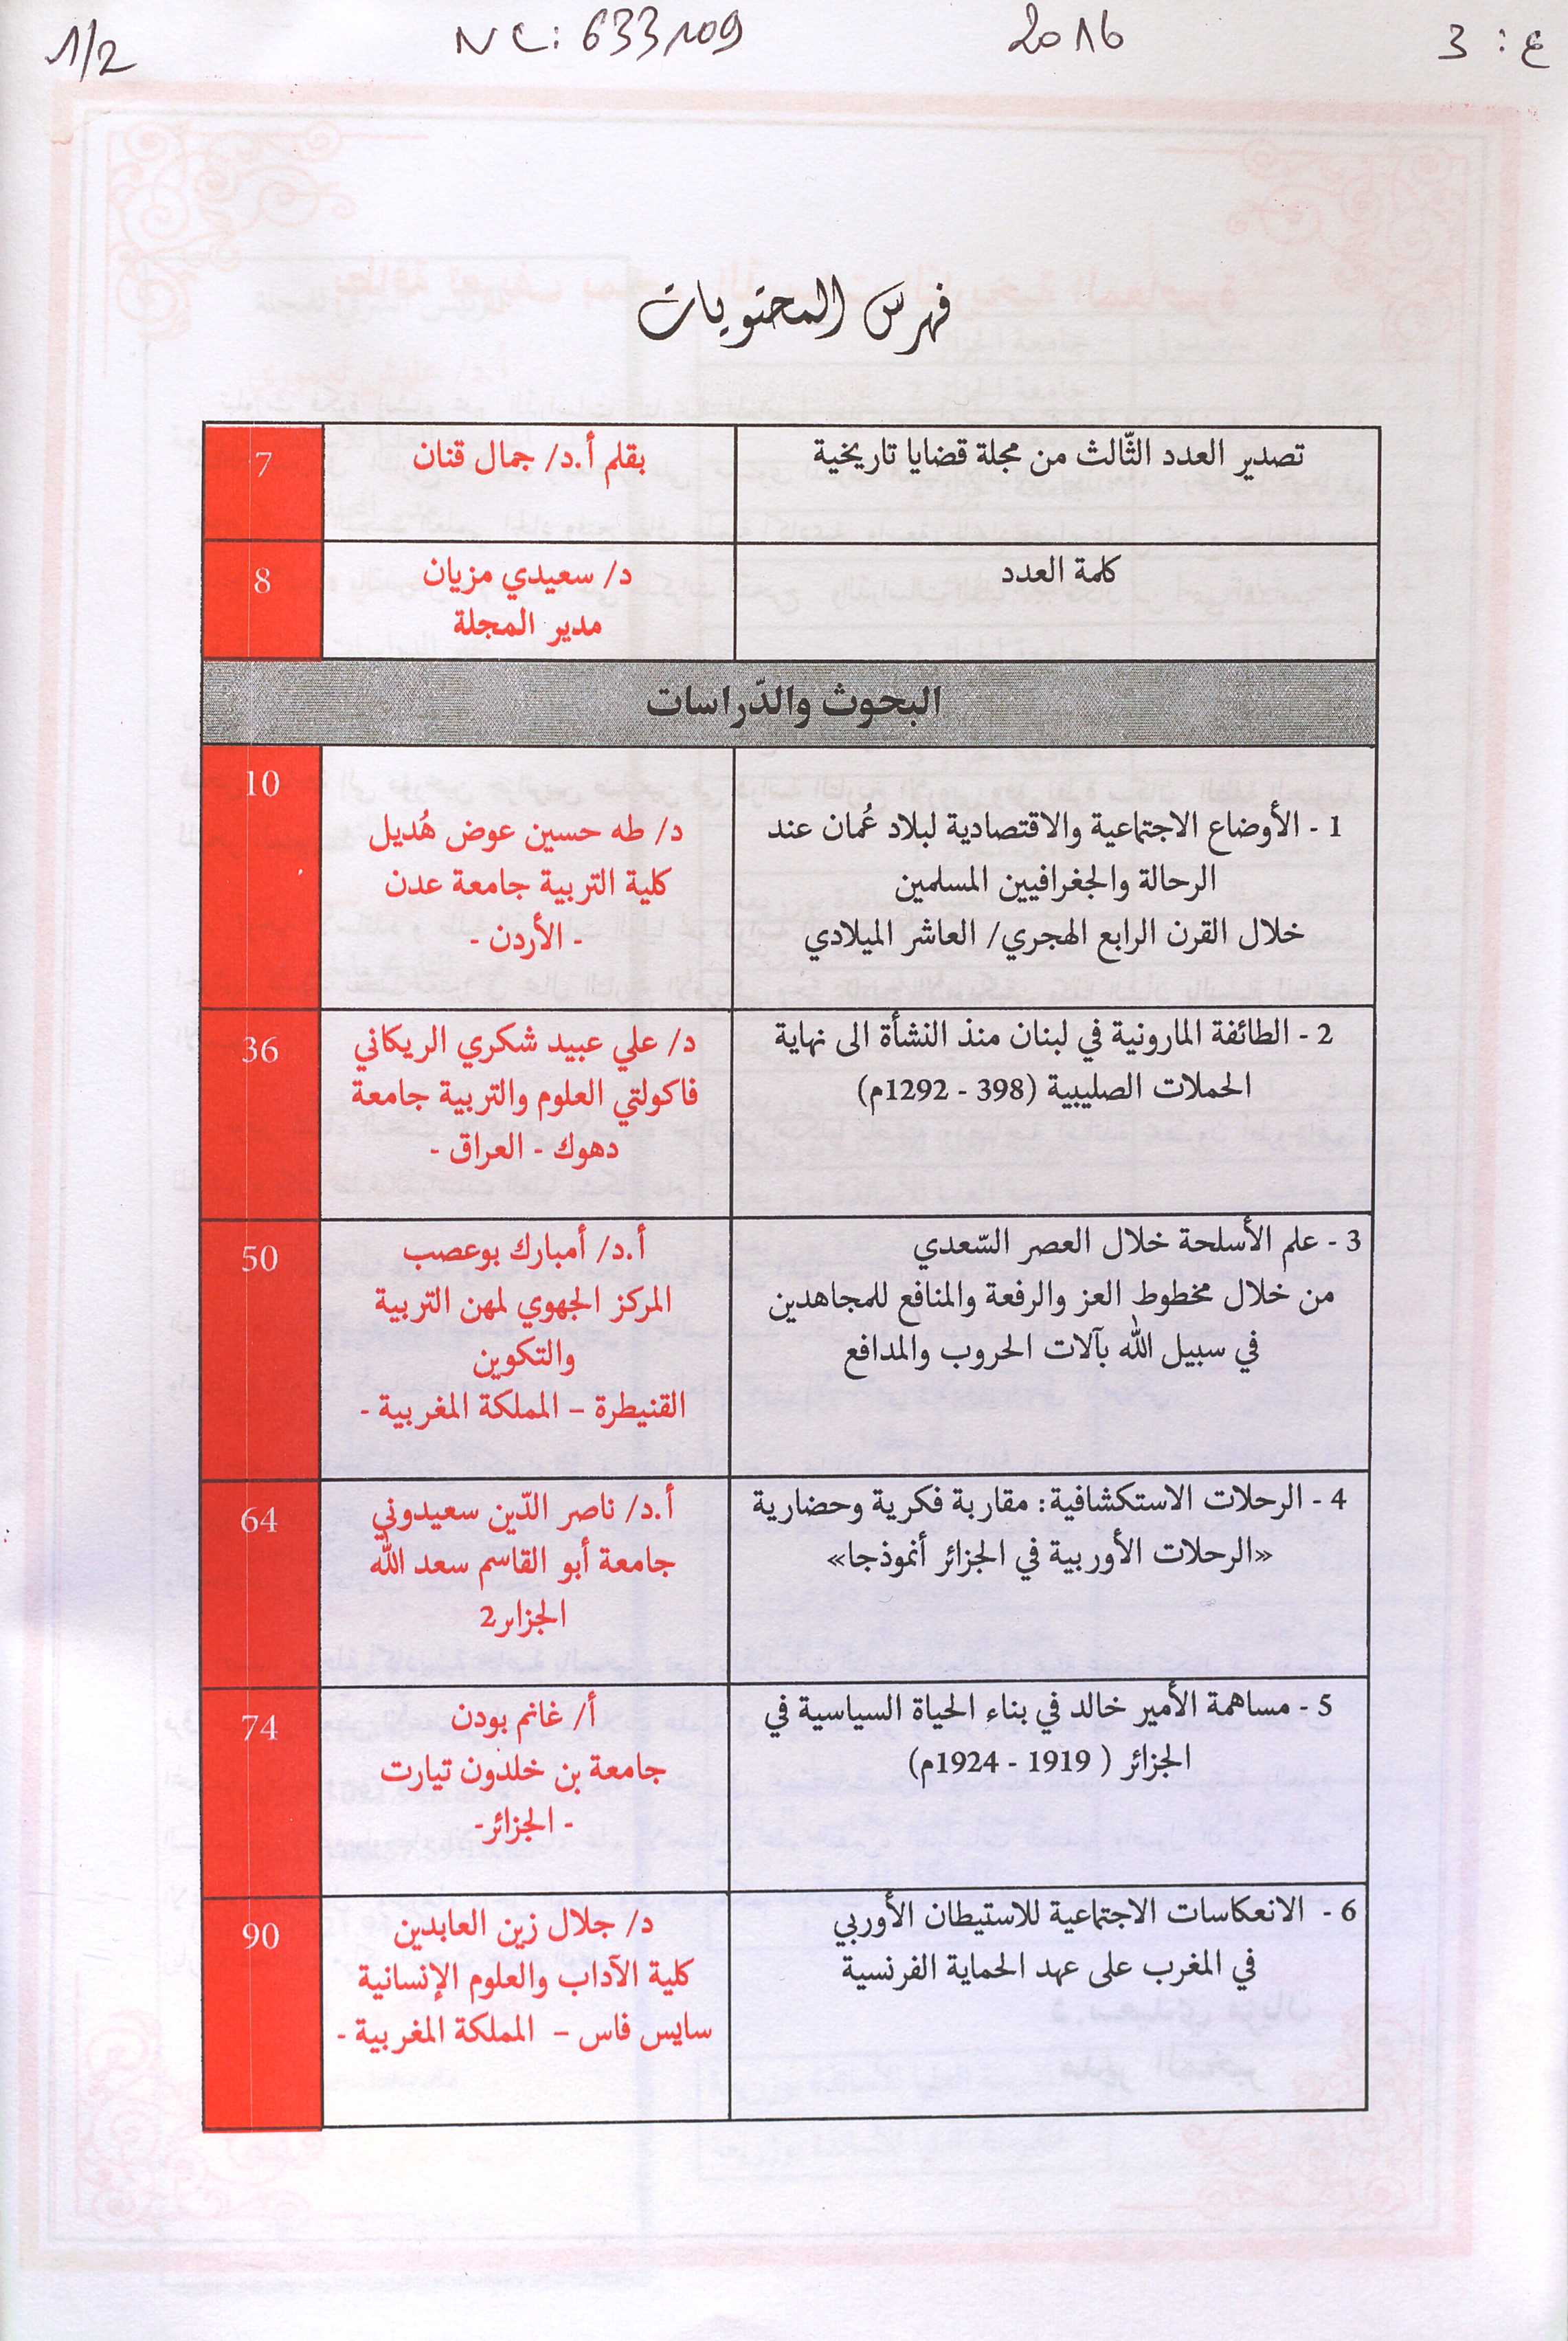 ع : 3
2016
NC: 633109
1/2
فهرس المحتويات
تصدير العدد الثّالث من مجلة قضايا تاريخية
بقلم أ.د/ جمال قنان
7
كلمة العدد
د/ سعيدي مزيان
مدير المجلة
8
البحوث والدّراسات
1 - الأوضاع الاجتماعية والاقتصادية لبلاد عُمان عند
الرحالة والجغرافيين المسلمين
خلال القرن الرابع الهجري/ العاشر الميلادي
د/ طه حسين عوض هُديل
كلية التربية جامعة عدن
- الأردن -
10
2 - الطائفة المارونية في لبنان منذ النشأة الى نهاية
الحملات الصليبية (398 - 1292م)
د/ علي عبيد شكري الريكاني
فاكولتي العلوم والتربية جامعة
دهوك - العراق -
36
3 - علم الأسلحة خلال العصر السّعدي
من خلال مخطوط العز والرفعة والمنافع للمجاهدين
في سبيل الله بآلات الحروب والمدافع
أ.د/ أمبارك بوعصب
المركز الجهوي لمهن التربية
والتكوين
القنيطرة – المملكة المغربية -
50
4 - الرحلات الاستكشافية: مقاربة فكرية وحضارية
«الرحلات الأوربية في الجزائر أنموذجا»
أ.د/ ناصر الدّين سعيدوني
جامعة أبو القاسم سعد الله
الجزائر2
64
5 - مساهمة الأمير خالد في بناء الحياة السياسية في
الجزائر ( 1919 - 1924م)
أ/ غانم بودن
جامعة بن خلدون تيارت
- الجزائر-
74
6 - الانعكاسات الاجتماعية للاستيطان الأوربي
في المغرب على عهد الحماية الفرنسية
د/ جلال زين العابدين
كلية الآداب والعلوم الإنسانية
سايس فاس – المملكة المغربية -
90